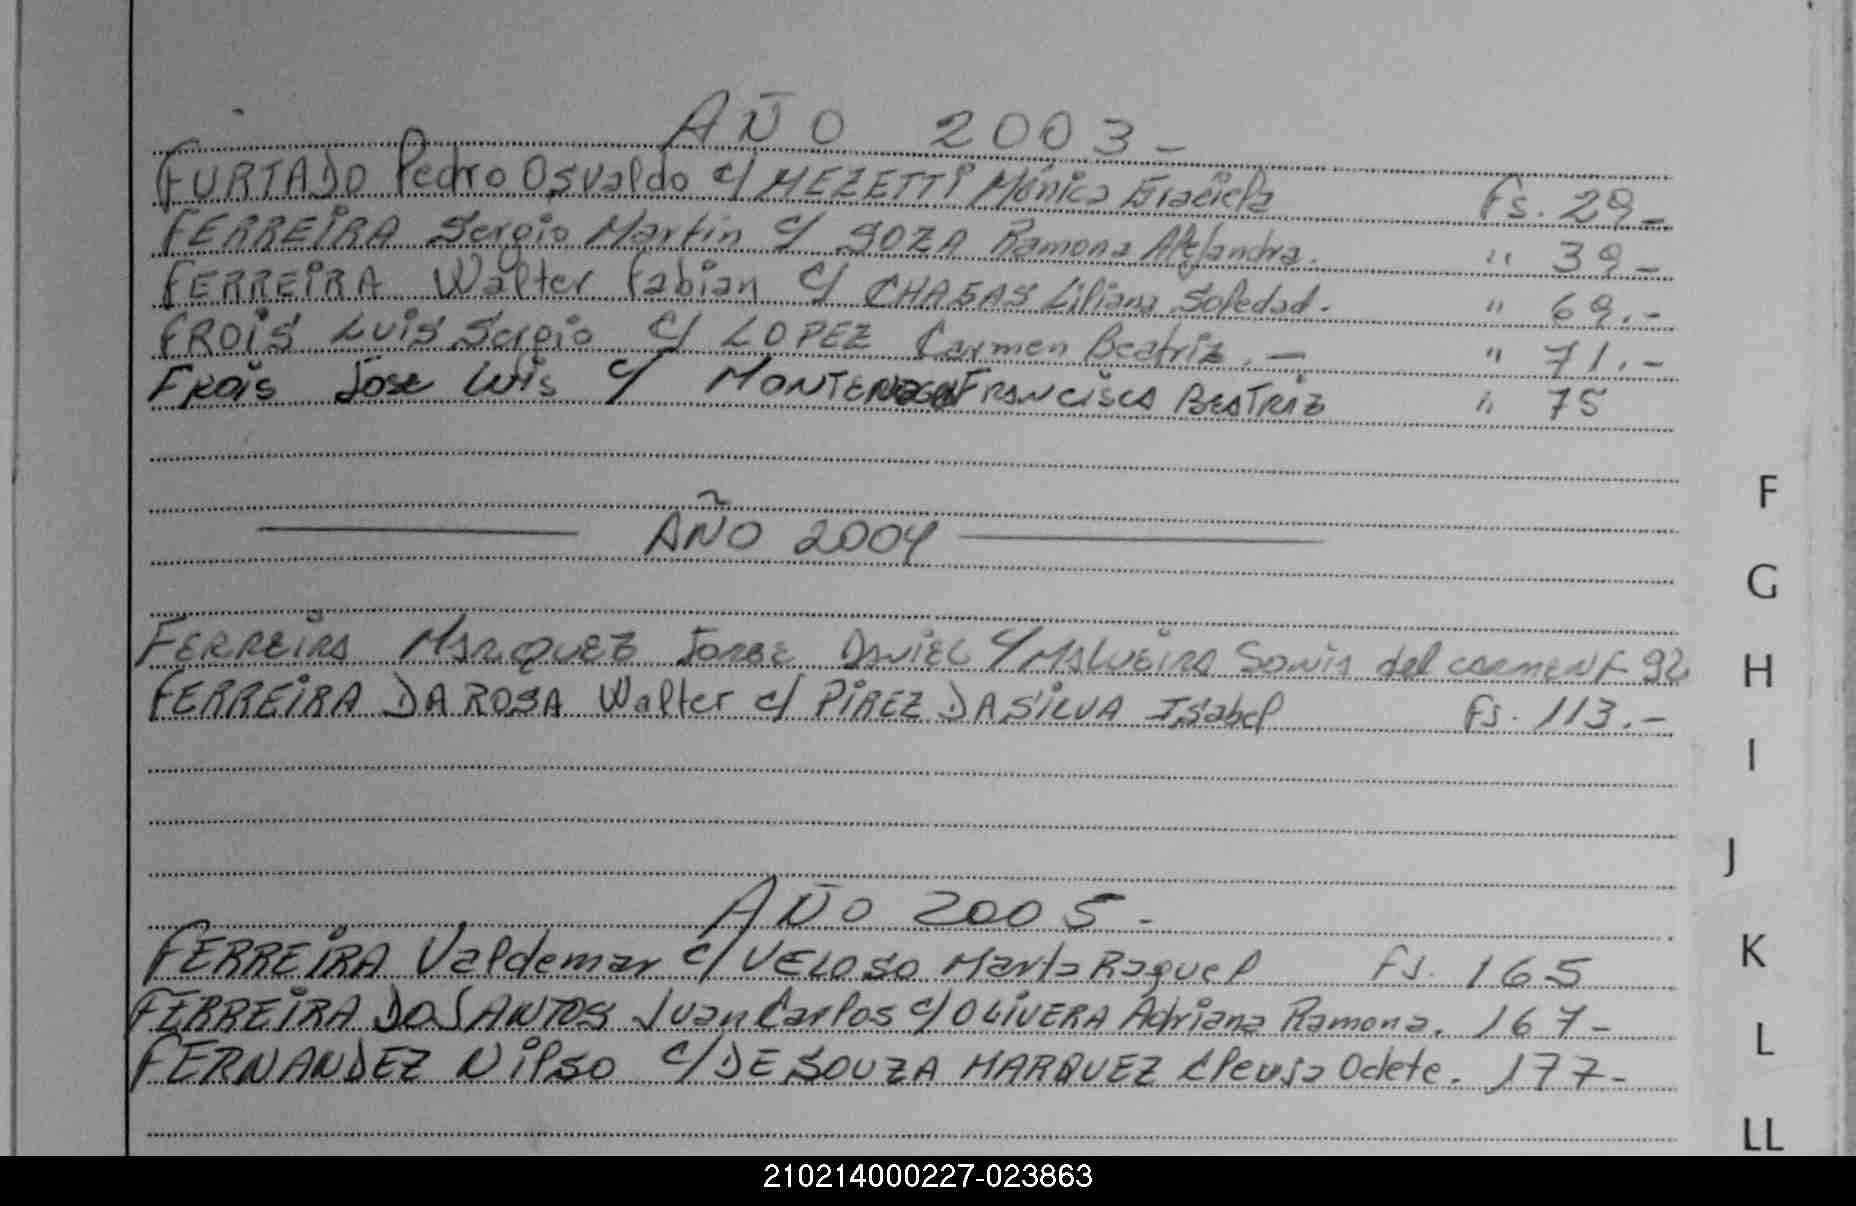 AÑO 2003-
FURTADO Pedro Osvaldo c/ MEZETTI Mónica Graciela Fs. 29-
FERREIRA Sergio Martin c/ SOZA Ramona Alejandra. " 39-
FERREIRA Walter Fabian c/ CHAGAS Liliana Soledad. " 69.-
FROIS LUIS Sergio c/ LOPEZ Carmen Beatriz.- " 71.-
FROIS Jose Luis c/ FRANCISCA BEATRIZ " 75
AÑO 2004
FERREIRA MARQUEZ JORGE DANIEL c/ MALVEIRA SONIA del CARMEN F 92
FERREIRA DA ROSA Walter c/ PIREZ DA SILVA Isabel Fs. 113.-
AÑO 2005-
FERREIRA Valdemar c/ VELOSO Marta Raquel Fs. 165
FERREIRA DOSANTOS Juan Carlos c/ OLIVERA Adriana Ramona. 167-
FERNANDEZ Nilso c/ DE SOUZA MARQUEZ Cleusa Odete. 177-
F
G
H
I
J
K
L
LL
210214000227-023863